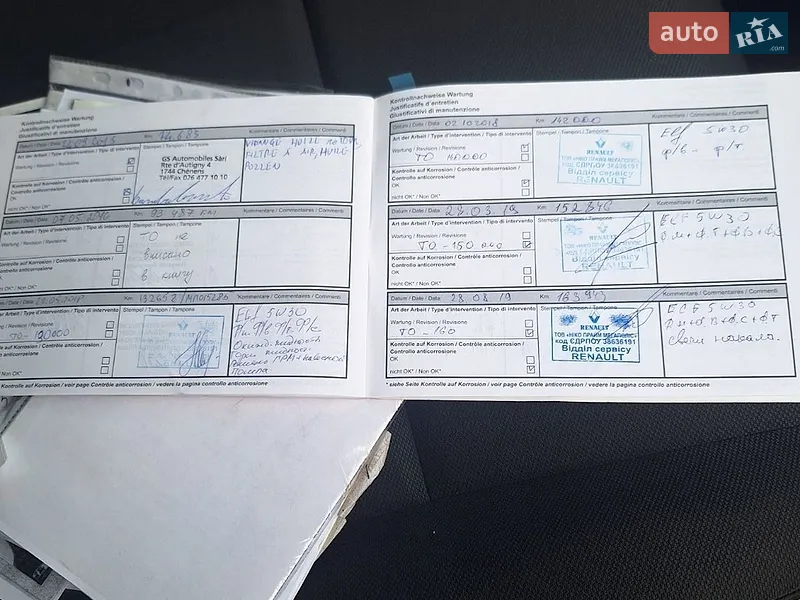 auto RIA .com
Kontrollnachweise Wartung
Justificatifs d'entretien
Giustificativi di manutenzione
Datum / Date / Data Km 74 683 Kommentare / Commentaires / Commenti
Art der Arbeit / Type d'intervention / Tipo di intervento Stempel / Tampon / Tampone
Wartung / Revision / Revisione
GS Automobiles Sàrl
Rte d'Autigny 4
1744 Chénens
Tél/Fax 026 477 10 10
VIDANGE HUILE
FILTRE A AIR, HUILE
POLLEN
Kontrolle auf Korrosion / Contrôle anticorrosion /
Controllo anticorrosione
OK
nicht OK* / Non OK*
Datum / Date / Data 07.05.2016 Km 93 437 km Kommentare / Commentaires / Commenti
Art der Arbeit / Type d'intervention / Tipo di intervento Stempel / Tampon / Tampone
Wartung / Revision / Revisione
ТО не
вписано
в книгу
Kontrolle auf Korrosion / Contrôle anticorrosion /
Controllo anticorrosione
OK
nicht OK* / Non OK*
Datum / Date / Data Km Kommentare / Commentaires / Commenti
Art der Arbeit / Type d'intervention / Tipo di intervento Stempel / Tampon / Tampone
Wartung / Revision / Revisione
Elf 5W30
Kontrolle auf Korrosion / Contrôle anticorrosion /
Controllo anticorrosione
OK
nicht OK* / Non OK*
помпа
* siehe Seite Kontrolle auf Korrosion / voir page Contrôle anticorrosion / vedere la pagina controllo anticorrosione
Kontrollnachweise Wartung
Justificatifs d'entretien
Giustificativi di manutenzione
Datum / Date / Data 02.10.2018 Km 142000 Kommentare / Commentaires / Commenti
Art der Arbeit / Type d'intervention / Tipo di intervento Stempel / Tampon / Tampone
Wartung / Revision / Revisione
ТО 140000
RENAULT
ТОВ «НІКО ПРАЙМ МЕГАПОЛІС»
код ЄДРПОУ 38636191
Відділ сервісу
RENAULT
Elf 5W30
Kontrolle auf Korrosion / Contrôle anticorrosion /
Controllo anticorrosione
OK
nicht OK* / Non OK*
Datum / Date / Data 27.03.19 Km 152846 Kommentare / Commentaires / Commenti
Art der Arbeit / Type d'intervention / Tipo di intervento Stempel / Tampon / Tampone
Wartung / Revision / Revisione
ТО-150 000
RENAULT
ELF 5W30
Kontrolle auf Korrosion / Contrôle anticorrosion /
Controllo anticorrosione
OK
nicht OK* / Non OK*
Datum / Date / Data 28.08.19 Km 163943 Kommentare / Commentaires / Commenti
Art der Arbeit / Type d'intervention / Tipo di intervento Stempel / Tampon / Tampone
Wartung / Revision / Revisione
ТО-160
RENAULT
ТОВ «НІКО ПРАЙМ МЕГАПОЛІС»
код ЄДРПОУ 38636191
Відділ сервісу
RENAULT
ELF 5W30
Свечи накала.
Kontrolle auf Korrosion / Contrôle anticorrosion /
Controllo anticorrosione
OK
nicht OK* / Non OK*
* siehe Seite Kontrolle auf Korrosion / voir page Contrôle anticorrosion / vedere la pagina controllo anticorrosione